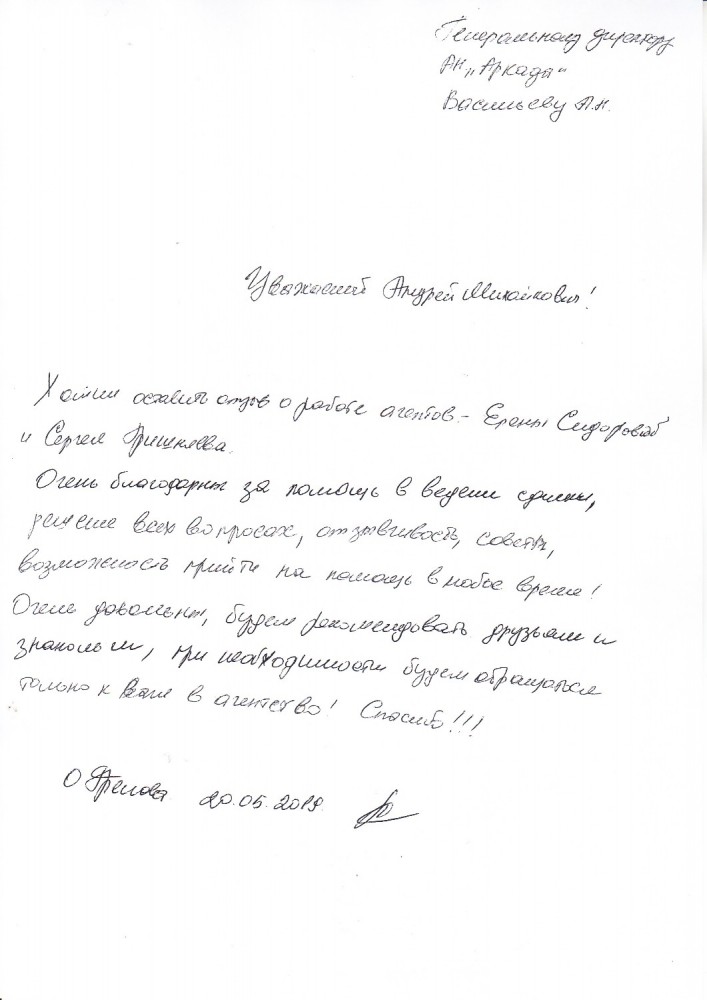 Генеральному директору
АН „Аркада“
Васильеву А.М.
Уважаемый Андрей Михайлович!
Хотим оставить отзыв о работе агентов - Елены Сидоровой
и Сергея
Очень благодарны за помощь в ведении сделки,
решение всех вопросах, отзывчивость, советы,
возможность прийти на помощь в любое время!
Очень довольны, будем рекомендовать друзьям и
знакомым, при необходимости будем обращаться
только к Вам в агентство! Спасибо!!!
20.05.2019